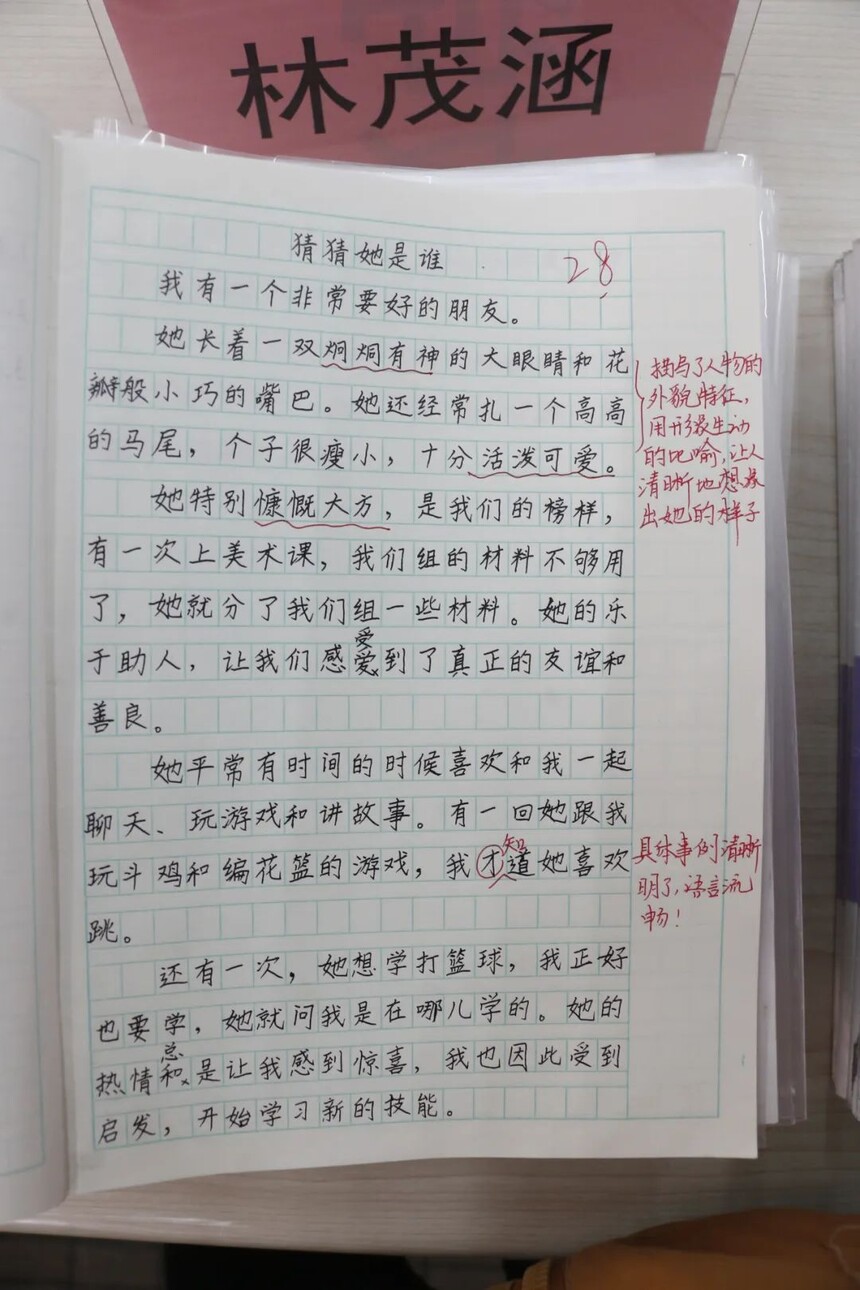 林茂涵
猜猜她是谁
28
我有一个非常要好的朋友。
她长着一双炯炯有神的大眼睛和花
瓣般小巧的嘴巴。她还经常扎一个高高
的马尾，个子很瘦小，十分活泼可爱。
她特别慷慨大方，是我们的榜样，
有一次上美术课，我们组的材料不够用
了，她就分了我们组一些材料。她的乐
受
于助人，让我们感爱到了真正的友谊和
善良。
她平常有时间的时候喜欢和我一起
聊天、玩游戏和讲故事。有一回她跟我
知
玩斗鸡和编花篮的游戏，我才道她喜欢
跳。
还有一次，她想学打篮球，我正好
也要学，她就问我是在哪儿学的。她的
总
热情和是让我感到惊喜，我也因此受到
启发，开始学习新的技能。
描写了人物的
外貌特征，
用形象生动
的比喻，让人
清晰地想象
出她的样子
具体事例清晰
明了，语言流
畅！